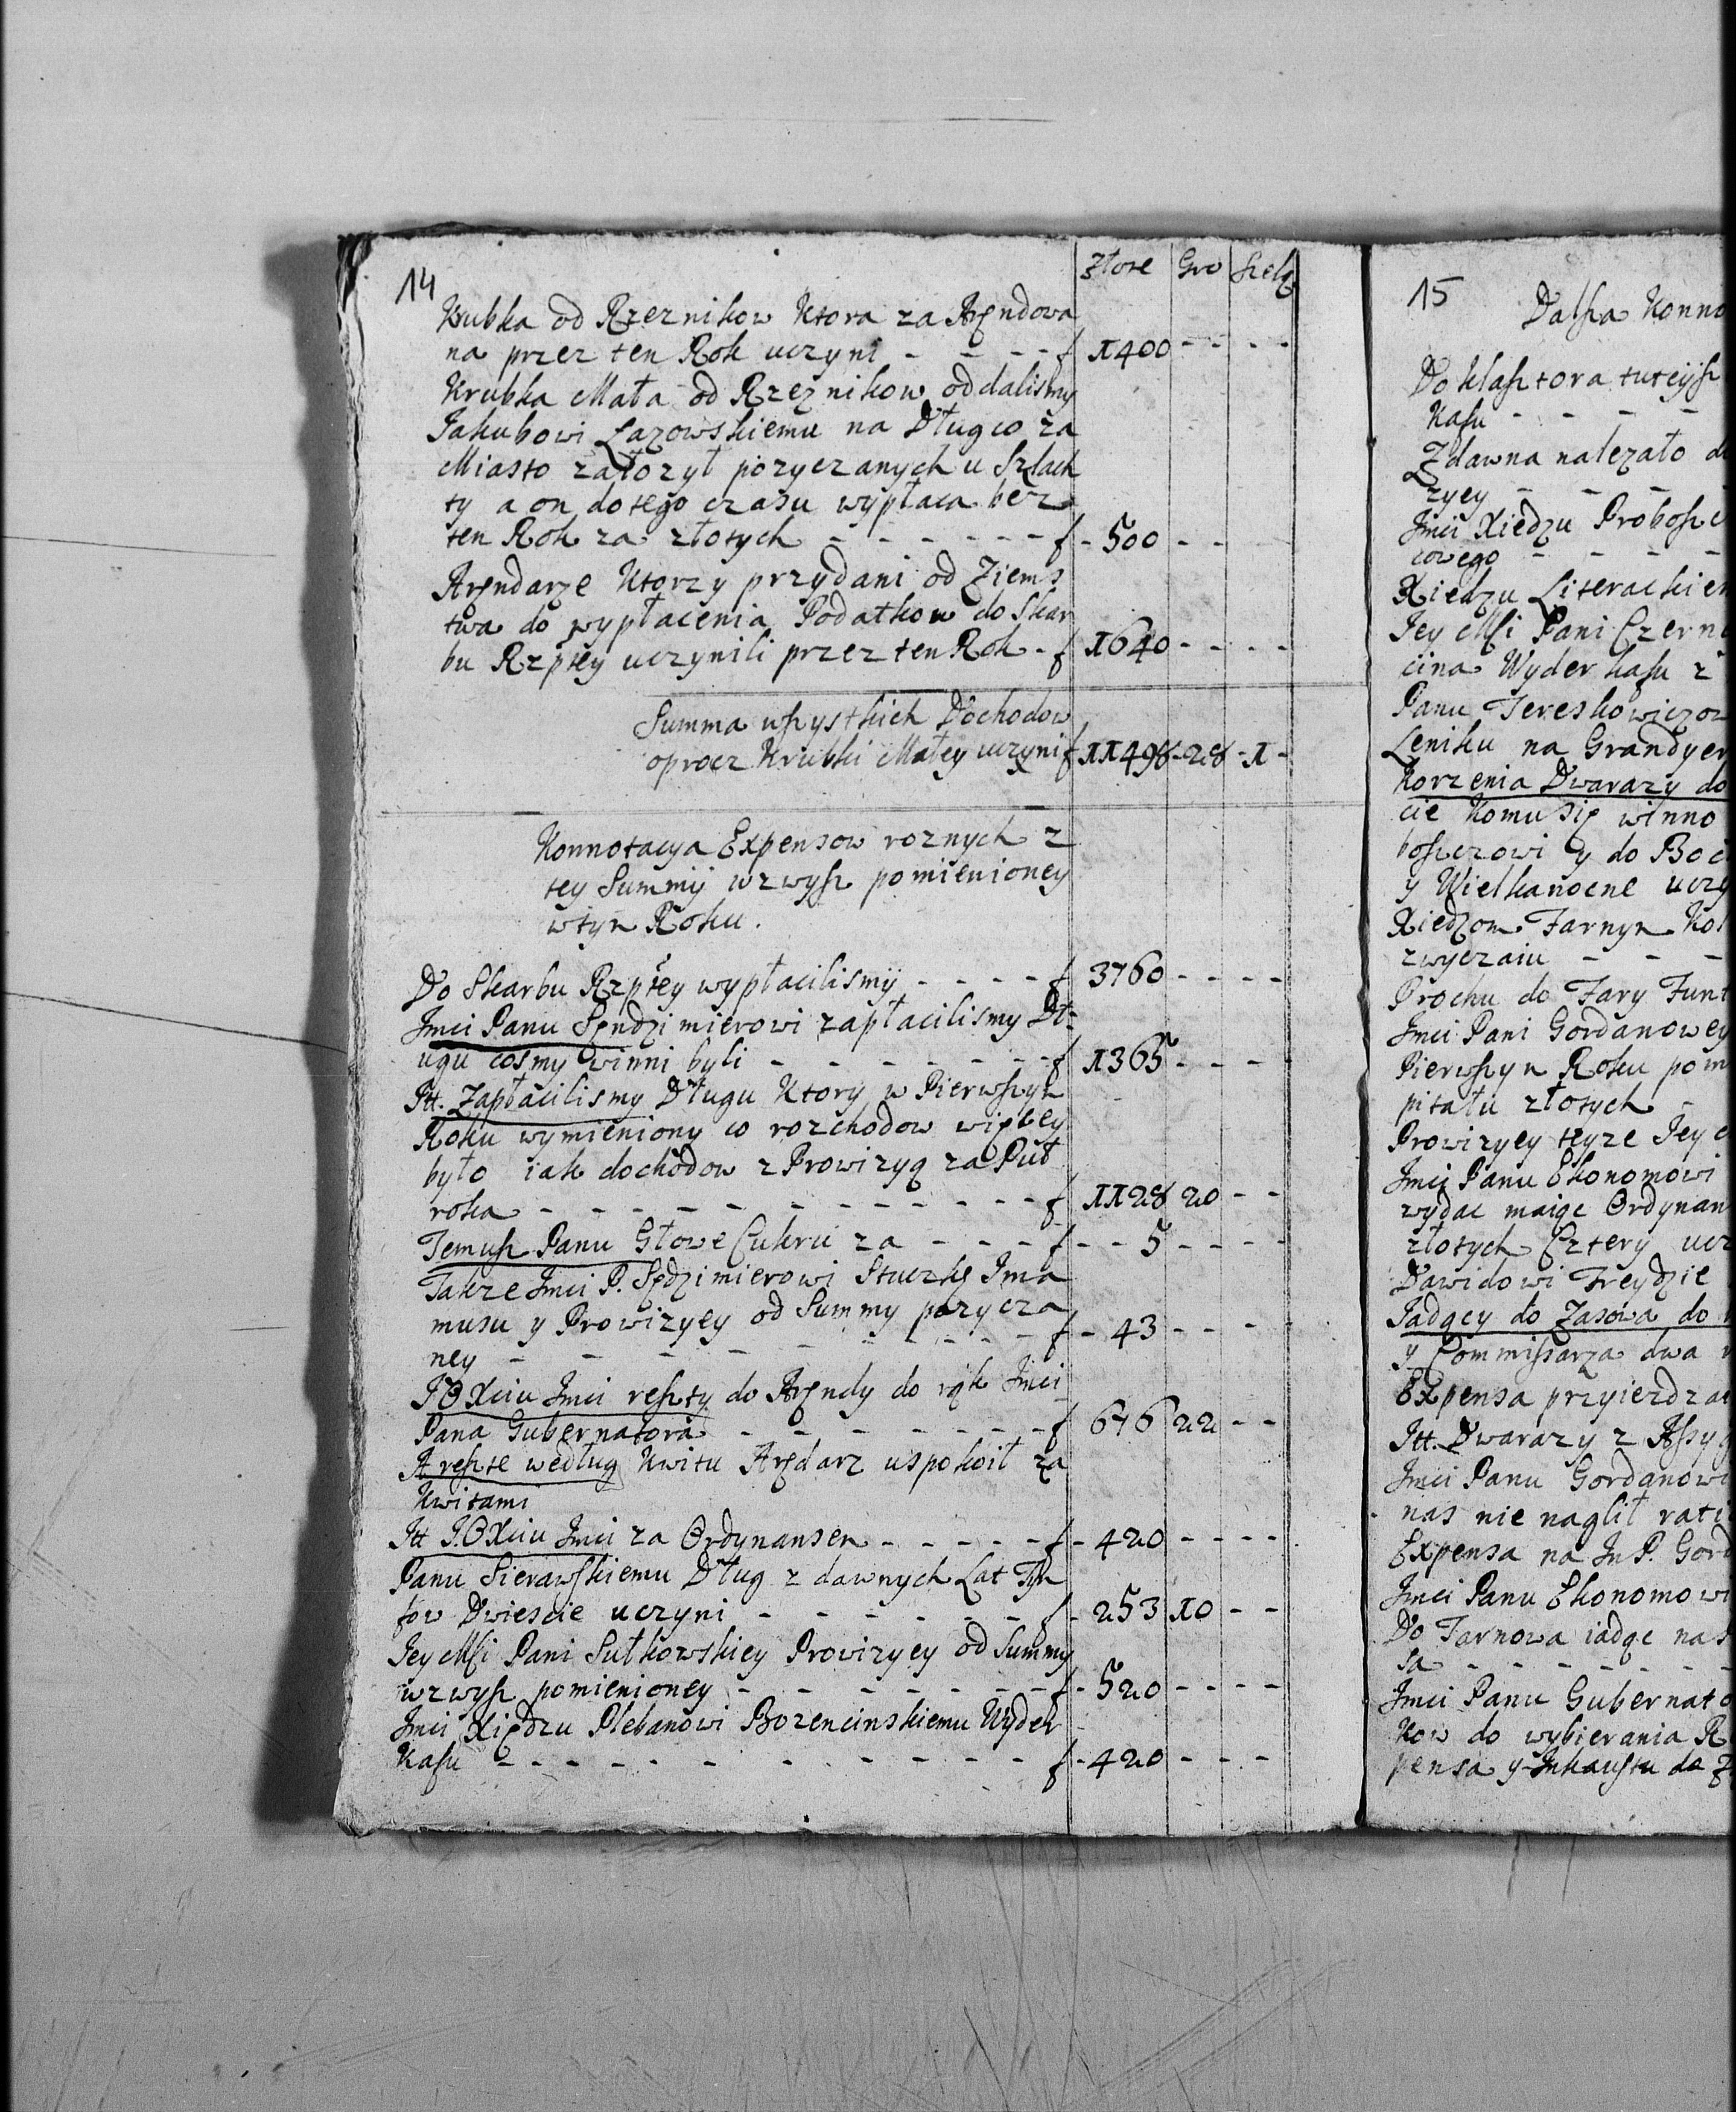 14
Złote Gro Szelą
Krubka od Rzeznikow Ktora za Arendowa
na przez ten Rok uczyni - - - - f 1400 - - - -
Krubka Mała od Rzeznikow oddalismy
Jakubowi Łazowskiemu na Dług co za
Miasto załozył pozyczanych u Szlach
ty a on do tego czasu wypłaca bez
ten Rok za złotych - - - - - - f - 500 - -
Arendarze Ktorzy przydani od Ziems
twa do wypłacenia Podatkow do Skar
bu Rzptey uczynili przez ten Rok - f 1640 - - - -
Summa wszystkich Dochodow
oprocz Krubki Małey uczyni f 11498 - 28 - 1 -
Konnotacya Expensow roznych z
tey Summy wzwysz pomienioney
w tym Roku.
Do Skarbu Rzptey wypłacilismy - - - - f 3760 - - - -
Jmci Panu Sendzimierowi zapłacilismy Dł-
ugu cosmy winni byli - - - - - - - f 1365 - - -
Itt. Zapłacilismy Długu Ktory w Pierwszym
Roku wymieniony co rozchodow więcey
było iak dochodow z Prowizyą za Puł
roka - - - - - - - - - - f 1128 20 - -
Temusz Panu Głowe Cukru za - - - - f - - 5 - - - -
Takze Jmci P. Sędzimierowi Stuczkę Jma
musu y Prowizyey od Summy pozycza
ney - - - - - - - - - f - 43 - - - -
JOXciu Jmci reszty do Arendy do rąk Jmci
Pana Gubernatora - - - - - - - f 676 22 - -
A reszte według Kwitu Arędarz uspokoił za
Kwitami
Itt J.OXciu Jmci za Ordynansem - - - - - f - 420 - - - -
Panu Sierawskiemu Dług z dawnych Lat Tym
fow Dwiescie uczyni - - - - - - f - 253 10 - -
Jey Msi Pani Sułkowskiey Prowizyey od Summy
wzwysz pomienioney - - - - - - - f - 520 - - - -
Jmci Xiędzu Plebanowi Borzencinskiemu Wyder
Kafu - - - - - - - - - - f - 420 - - -
15
Dalsza Konno
Do klasztora tuteysz
Kafu - - - -
Zdawna nalezało do
zyey - - - -
Jmci Xiedzu Probosz
cowego - - - -
Xiedzu Literackiem
Jey Msi Pani Czern
cina Wyder kafu z
Panu Tereskowiczow
Leniku na Grandyer
Korzenia Dwarazy do
cie Komu się winno
boszczowi y do Boc
y Wielkanocne uczy
Xiedzom Farnym Kol
zwyczaiu - - -
Prochu do Fary Funt
Jmci Pani Gordanowey
Pierwszym Roku pom
pitału złotych -
Prowizyey teyze Jey
Jmci Panu Ekonomowi
wydac maiąc Ordynan
złotych Cztery ucz
Dawidowi Freydzie
Jadący do Zasowa do
y Commissarza dwa
Expensa przyiezdza
Itt. Dwarazy z Assyg
Jmci Panu Gordanowi
nas nie naglił rati
Expensa na Jn P. Gord
Jmci Panu Ekonomowi
Do Tarnowa iadąc nas
sa - - - - - - -
Jmci Panu Gubernato
Kow do wybierania R
pensa y Inkausztu do